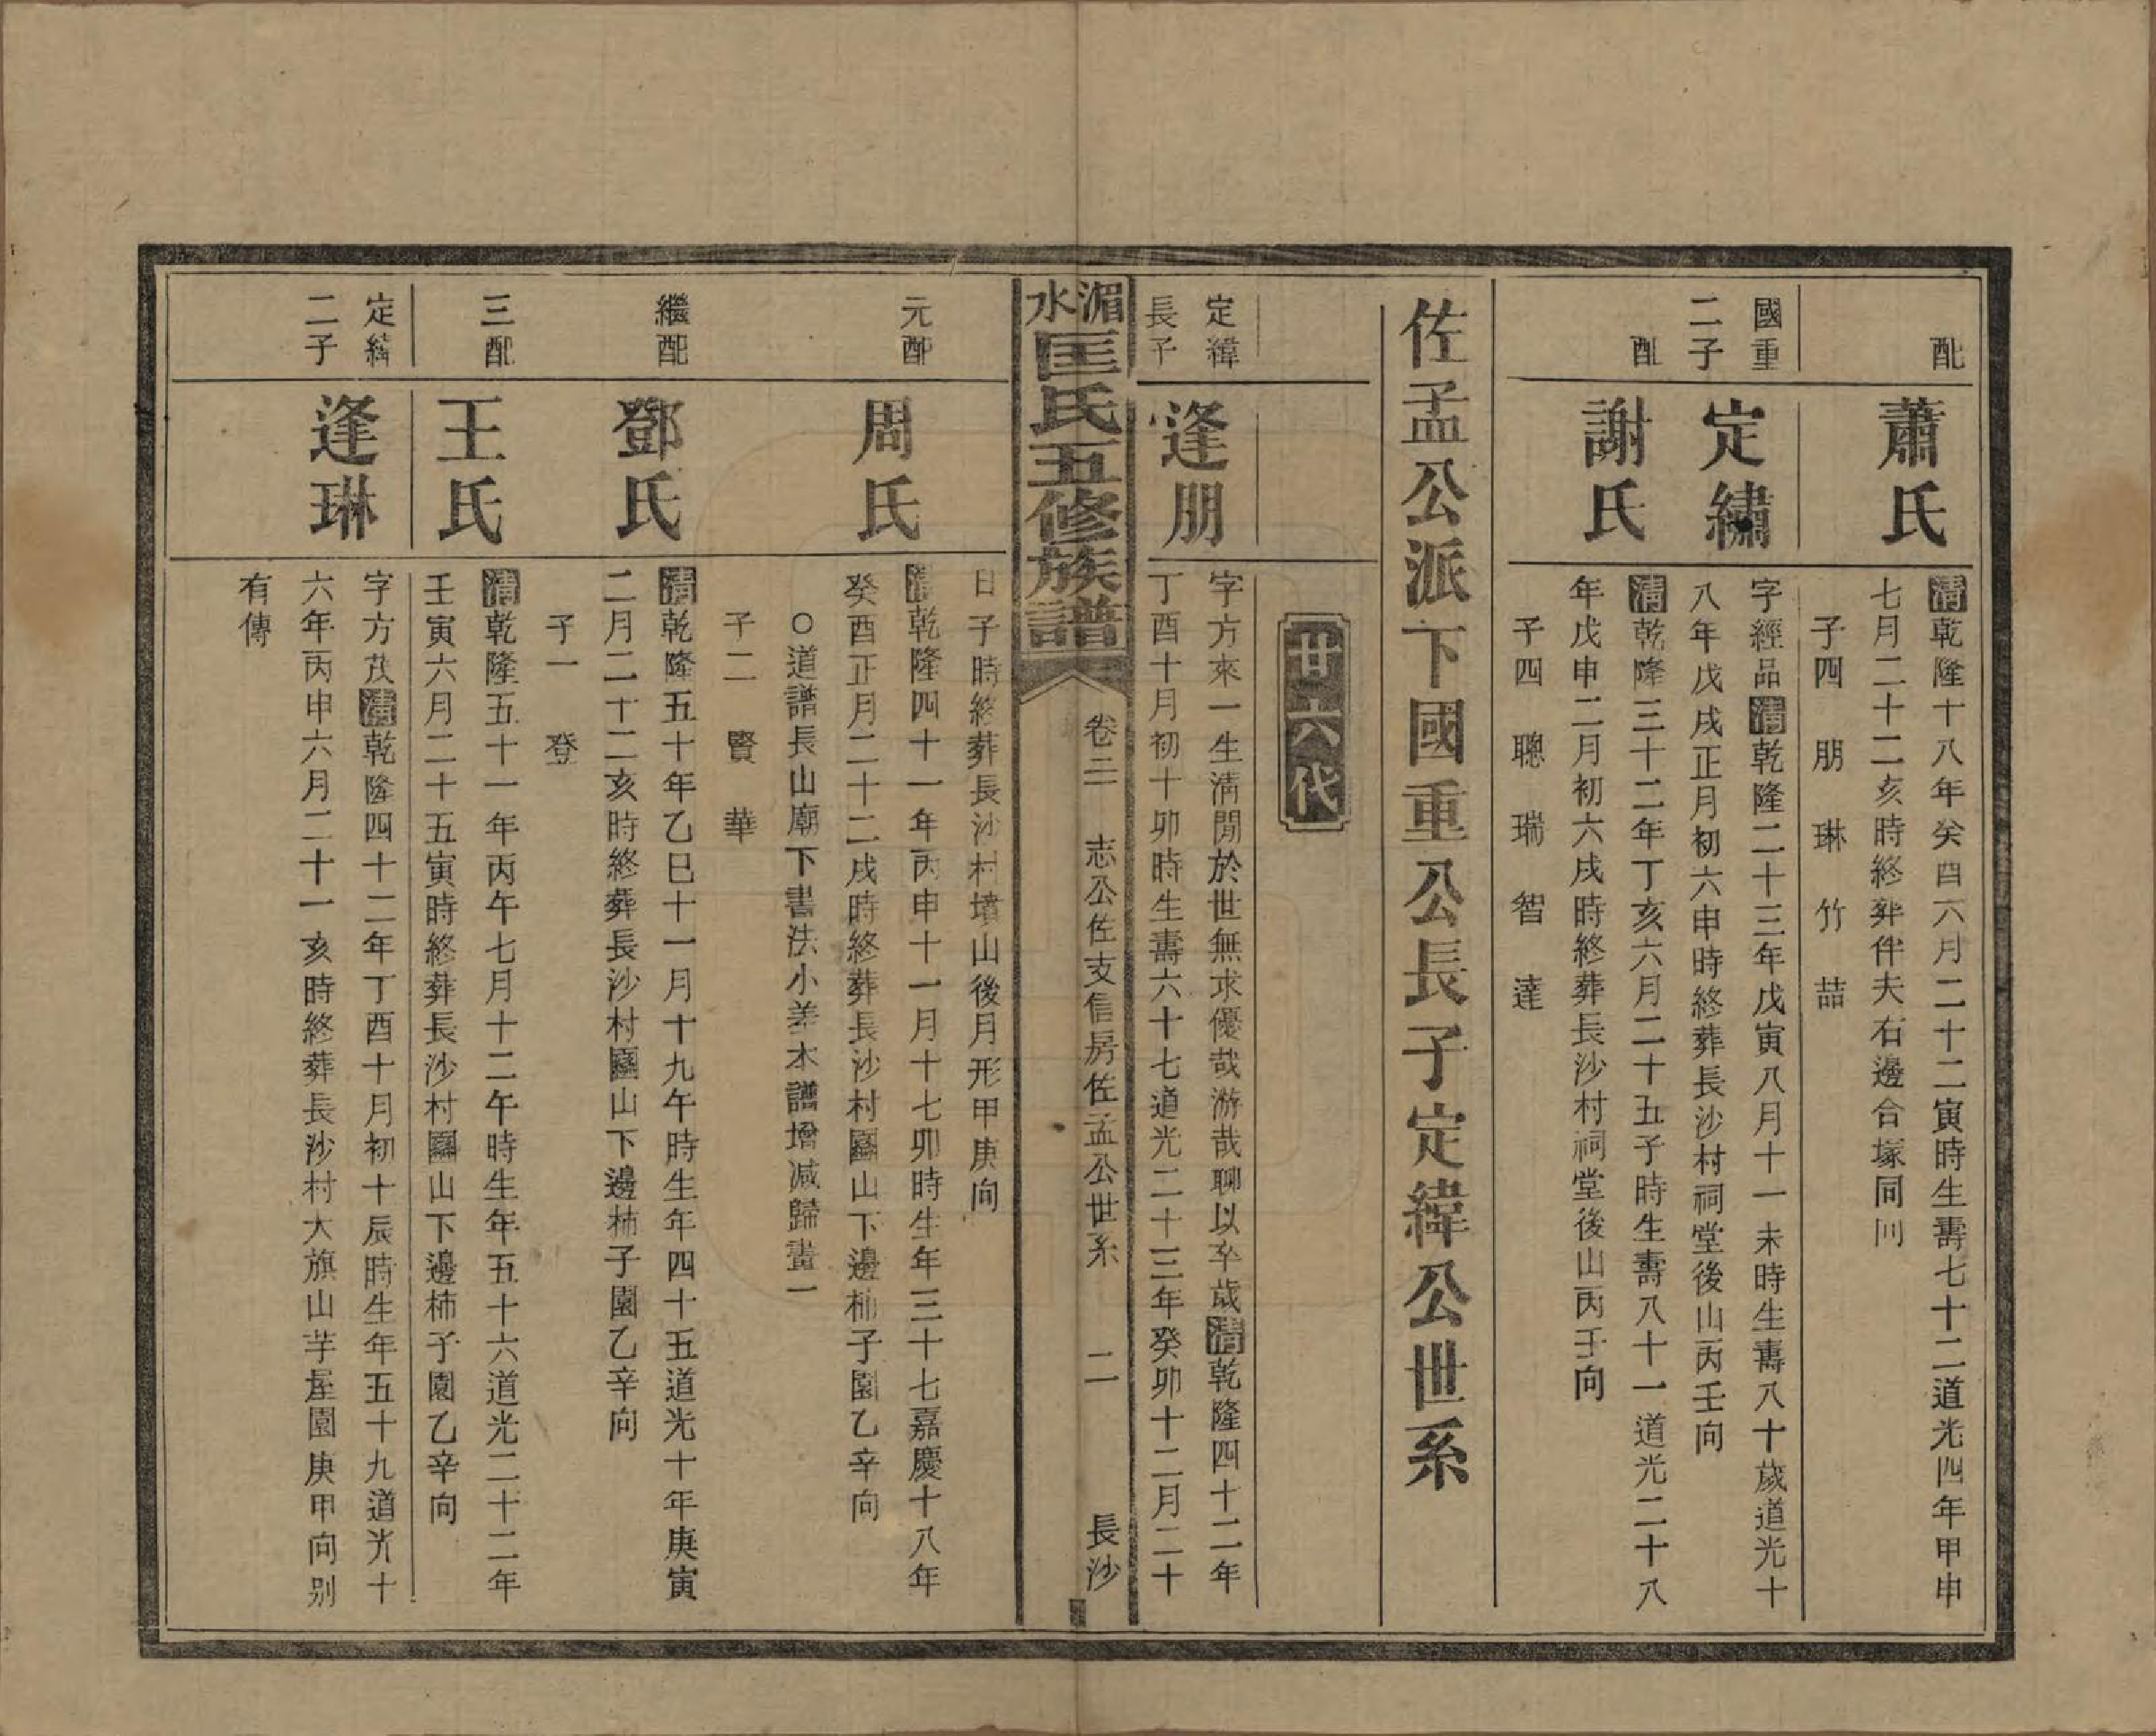 配
蕭氏
清乾隆十八年癸酉六月二十二寅時生壽七十二道光四年甲申
七月二十二亥時終葬伴夫右邊合塚同向
子四 朋 琳 竹 喆
國重
二子
定繡
字經品清乾隆二十三年戊寅八月十一未時生壽八十歲道光十
八年戊戌正月初六申時終葬長沙村祠堂後山丙壬向
配
謝氏
清乾隆三十二年丁亥六月二十五子時生壽八十一道光二十八
年戊申二月初六戌時終葬長沙村祠堂後山丙壬向
子四 聰 瑞 智 達
佐孟公派下國重公長子定緯公世系
廿六代
定緯
長子
逢朋
字方來一生清閒於世無求優哉游哉聊以卒歲清乾隆四十二年
丁酉十月初十卯時生壽六十七道光二十三年癸卯十二月二十
湄水匡氏五修族譜
卷三 志公佐支信房佐孟公世系 二 長沙
日子時終葬長沙村墳山後月形甲庚向
元配
周氏
清乾隆四十一年丙申十一月十七卯時生年三十七嘉慶十八年
癸酉正月二十二戌時終葬長沙村山下邊柿子園乙辛向
○道譜長山廟下書法小差本譜增減歸畫一
子二 賢 華
繼配
鄧氏
清乾隆五十年乙巳十一月十九午時生年四十五道光十年庚寅
二月二十二亥時終葬長沙村山下邊柿子園乙辛向
子一 登
三配
王氏
清乾隆五十一年丙午七月十二午時生年五十六道光二十二年
壬寅六月二十五寅時終葬長沙村山下邊柿子園乙辛向
定緯
二子
逢琳
字方茂清乾隆四十二年丁酉十月初十辰時生年五十九道光十
六年丙申六月二十一亥時終葬長沙村大旗山芋屋園庚甲向別
有傳